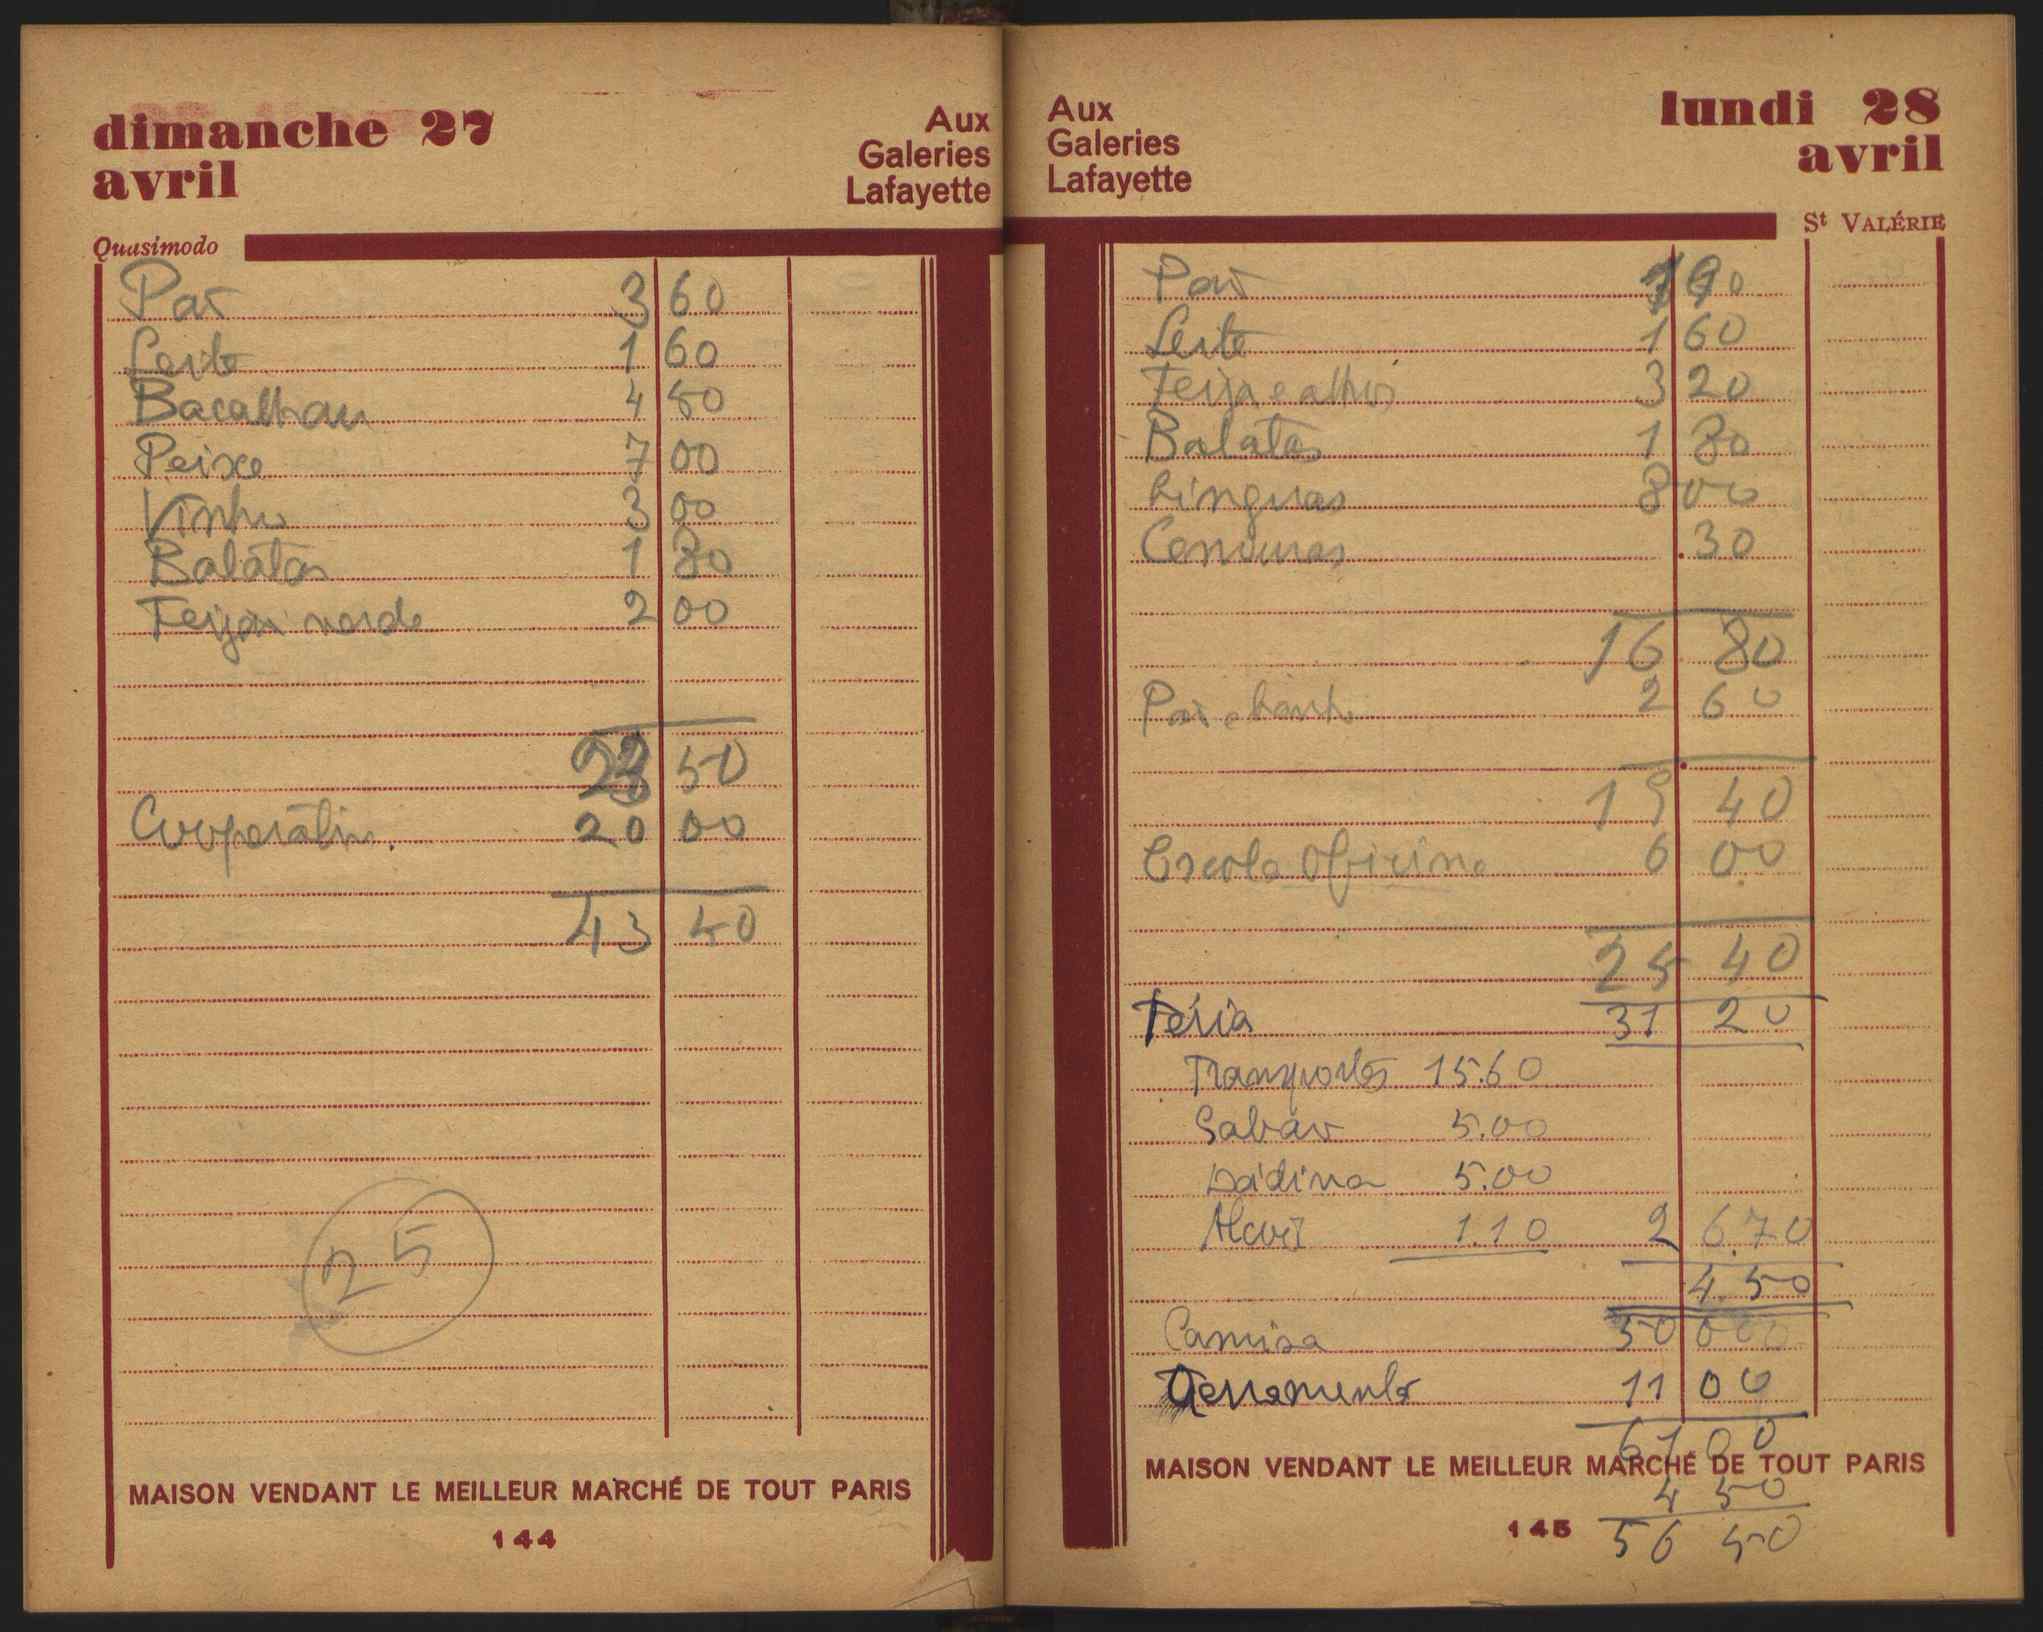 dimanche 27
avril
Aux
Galeries
Lafayette
Quasimodo
Pão 3 60
Leite 1 60
Bacalhau 4 50
Peixe 7 00
Vinho 3 00
Batatas 1 80
Feijão verde 2 00
50
Cooperativa 20 00
43 50
25
MAISON VENDANT LE MEILLEUR MARCHÉ DE TOUT PARIS
144
Aux
Galeries
Lafayette
lundi 28
avril
St VALÉRIE
Pão 1 90
Leite 1 60
Feijão e alhos 3 20
Batatas 1 80
Linguas 8 00
Cenouras .30
16 80
Pão e 2 60
19 40
Escola Oficina 6 00
25 40
Féria 31 20
Transportes 15.60
Sabão 5.00
5.00
1.10 2 6.70
4.50
Camisa 50 000
11 00
61 00
4 50
56 50
MAISON VENDANT LE MEILLEUR MARCHÉ DE TOUT PARIS
145